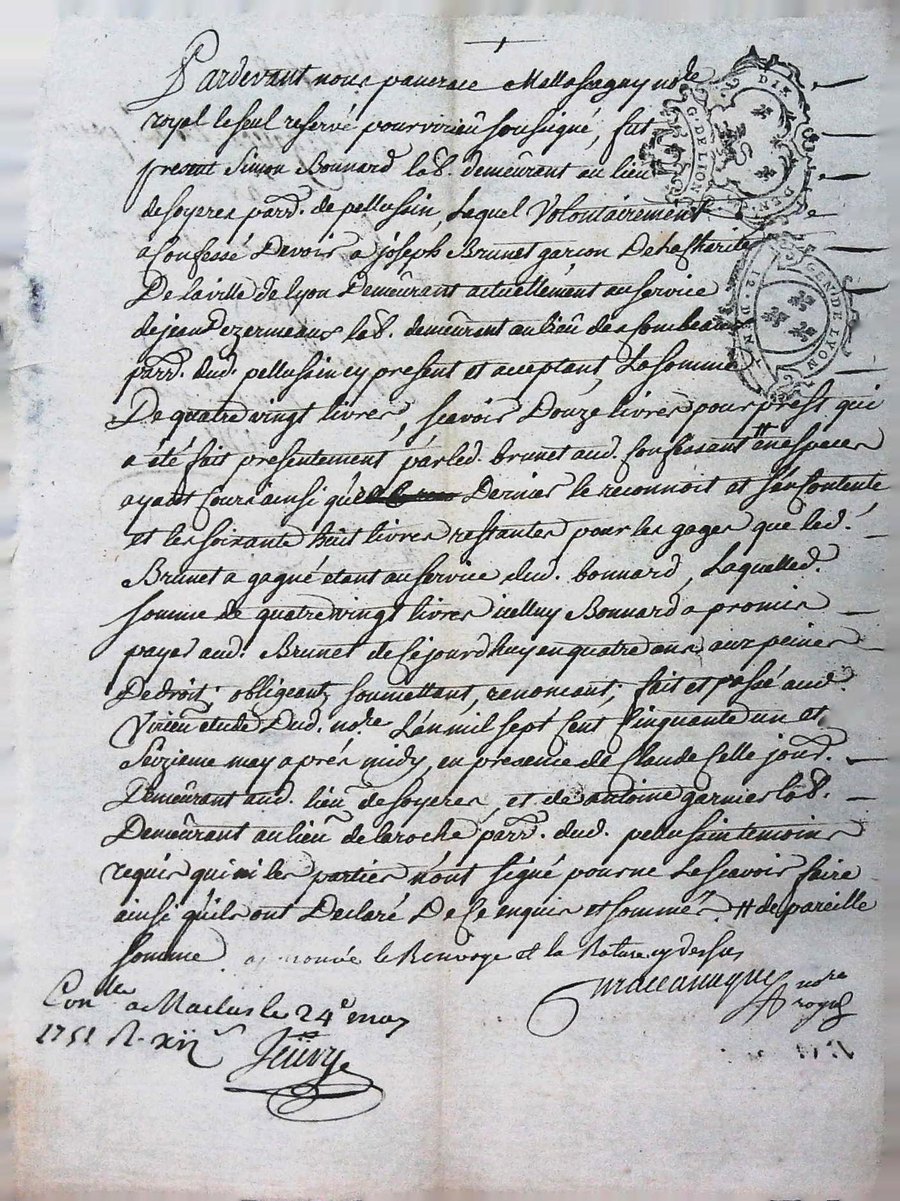 Pardevant nous pancrace Mallassagny no.re
royal le seul reservé pour virieu soussigné, fut
present Simon Bonnard lab. demeurant au lieu
de soyeres parr. de pellussin, Lequel Volontairement
a Confessé Devoir a joseph Brunet garcon De la Charité
De la ville de lyon Demeurant actuellement au service
de jean dezermeaux lab. demeurant au lieu de
parr. dud. pellussain cy present et acceptant, La somme
De quatre vingt livres, scavoir Douze livres pour prest qui
a été fait presentement par led. brunet aud. Confessant # en espaces
ayant Cours ainsi que Dernier le reconnoit et s'en Contente
et les soixante huit livres restantes pour les gages que led.
Brunet a gagné etant au service dud. bonnard, Laquelled.
somme de quatre vingt livres icelluy Bonnard a promis
payer aud. Brunet de Cejourdhuy en quatre ans aux peines
De droit; obligeant, soumettant, renoncant; fait et passé aud.
Virieu etude Dud. no.re L'an mil sept Cent Cinquante un et
Seizieme may aprés midy, en presence de Claude Celle jour.
Demeurant aud. lieu de soyeres, et de antoine garnier lab.
Demeurant au lieu de laroche parr. dud. pellussain temoins
requis qui ni les parties n'ont signé pour ne Le scavoir faire
ainsi qu'ils ont Declaré De Ce enquis et sommés. # de pareille
somme approuvée le Renvoye et la Rature cy dessus
no.re
royal
Con.lle a Maclas le 24e may
1751 R. xii s
G. DE LION
DIX DENIE
GEN. DE LYON
2. DEN